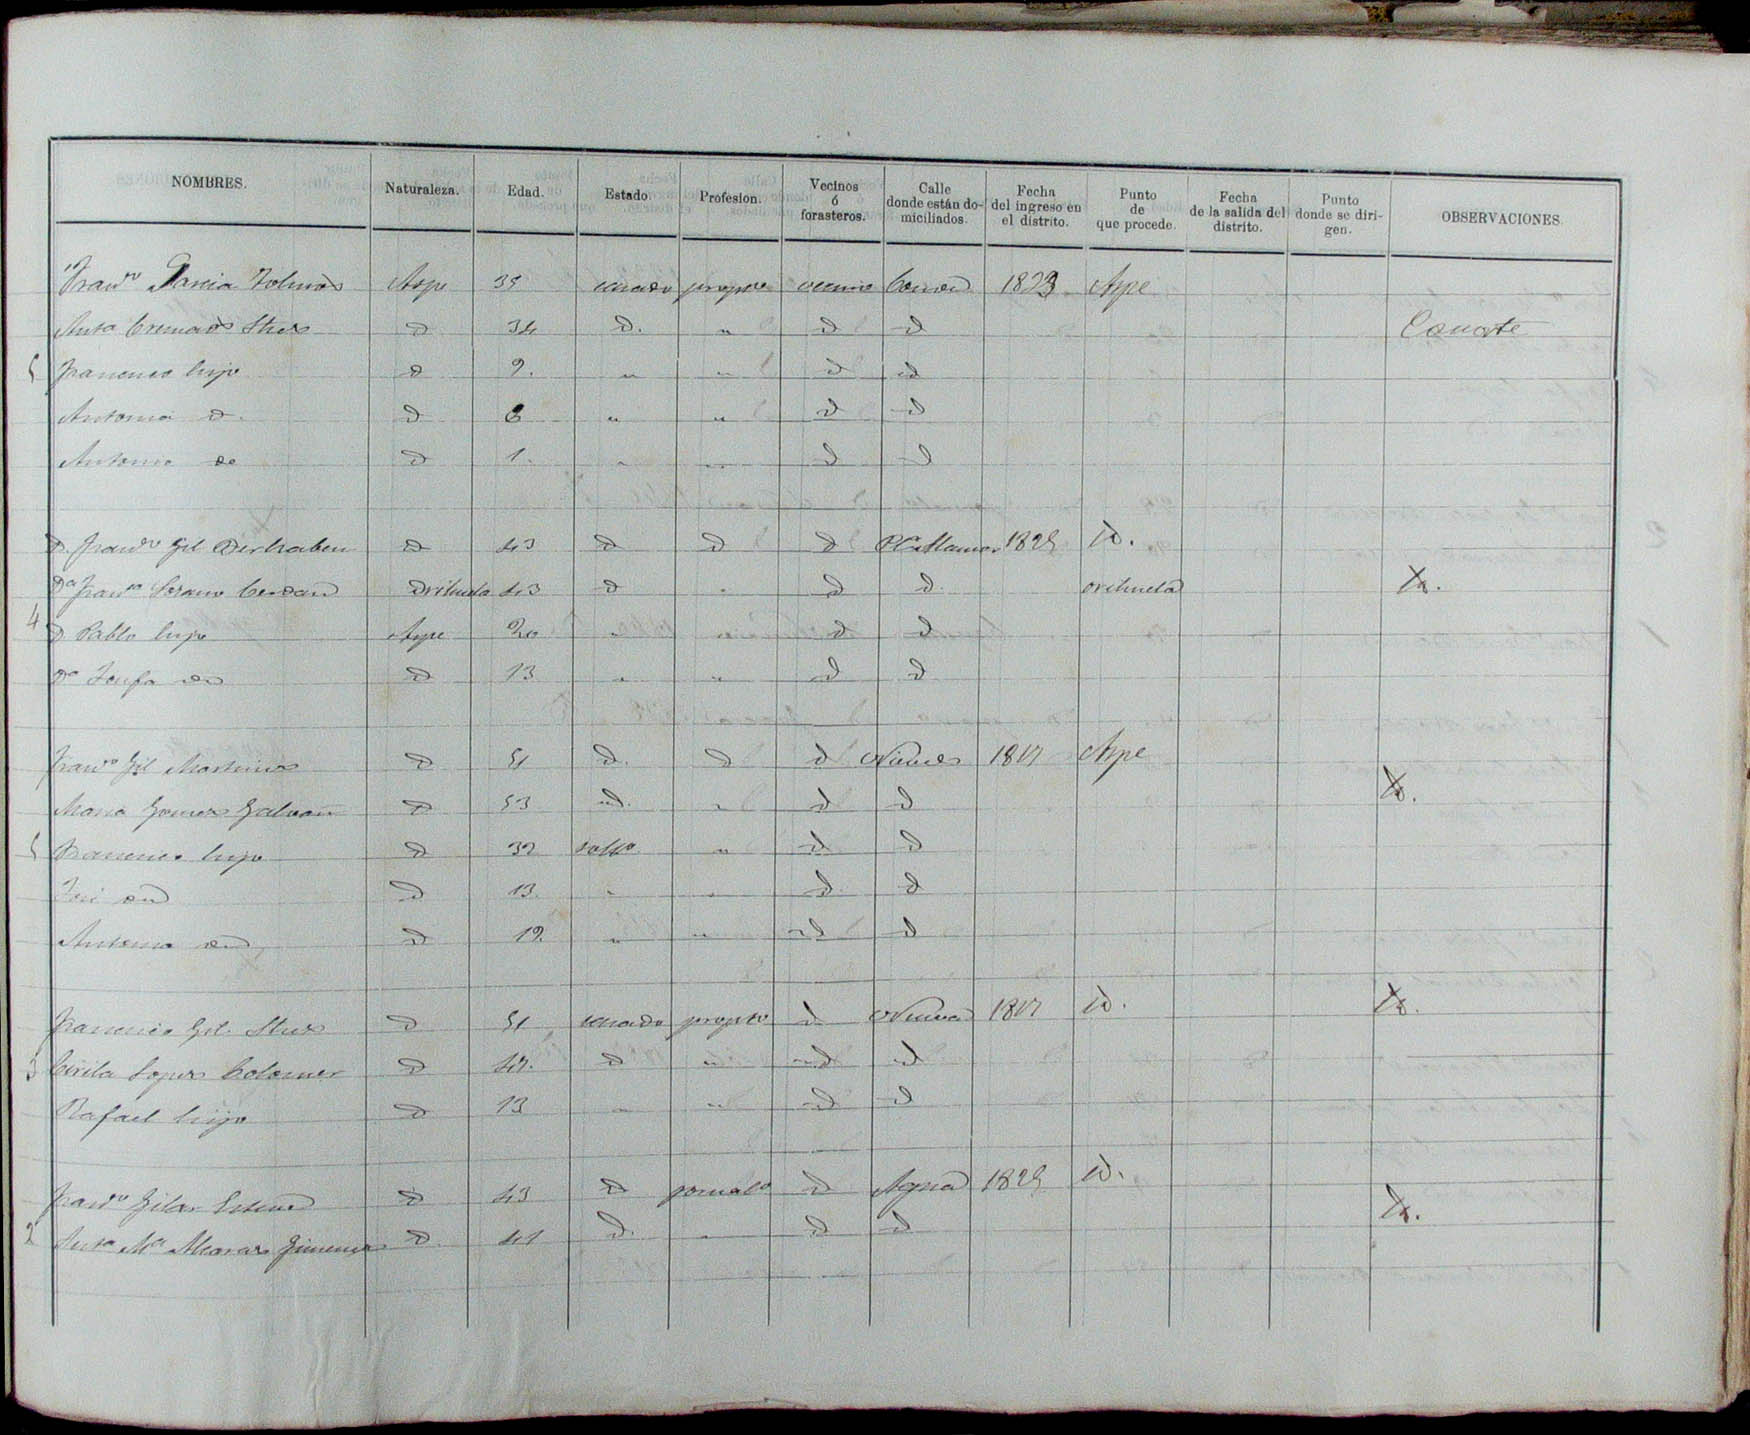 NOMBRES. Naturaleza. Edad. Estado. Profesion. Vecinos ó forasteros. Calle donde están domiciliados. Fecha del ingreso en el distrito. Punto de que procede. Fecha de la salida del distrito. Punto donde se dirigen. OBSERVACIONES.
Franco Garcia Aspe 35 casado propio vecino 1823 Aspe
Anta Cremades d 34 d. " d d Consorte
5 Francisco hijo d 9. " " d id
Antonia d. d 3 " " d d
Antonio d 1. " " d d
D. Franco Gil d 43 d d d 1825 id.
Da Franca Cerdan Orihuela 43 d " d d. orihuela id.
4 D. Pablo hijo Aspe 20 " " d d
Da Josefa id d 13 " " d d
Franco Gil Martinez d 51 d. d d Nieves 1817 Aspe
Maria Gomez Galvañ d 53 id. " d d id.
5 Francisco hijo d 32 solto " d d
José id d 13. " " d d
Antonio id d 19. " " id d
Francisco Gil d 51 casado propio d Nueva 1817 id. id.
3 Cirila Lopez Colomer d 47. d " id id
Rafael hijo d 13 " " id d
Franco Gilar Esteve d 43 d jornalo d Agua 1825 id.
2 Anta Ma Alcaraz Jimenez d 41 d. " d d id.